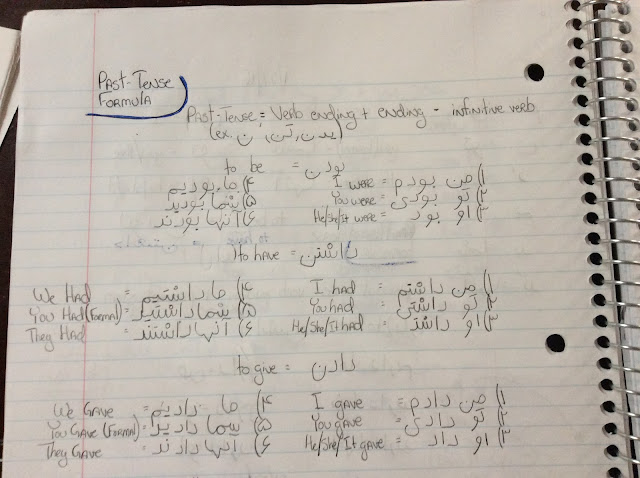 PAST-TENSE
FORMULA
Past-Tense = Verb ending + ending - infinitive verb
(ex. ن ,تن ,یدن)
to be = بودن
I were = ۱) من بودم ۴) ما بودیم
You were = ۲) تو بودی ۵) شما بودید
He/she/It were = ۳) او بود ۶) آنها بودند
to have = داشتن
I had = ۱) من داشتم We Had = ۴) ما داشتیم
You had = ۲) تو داشتی You Had (Formal) = ۵) شما داشتید
He/She/It had = ۳) او داشت They Had = ۶) آنها داشتند
to give = دادن
I gave = ۱) من دادم We Gave = ۴) ما دادیم
You gave = ۲) تو دادی You Gave (Formal) = ۵) شما دادید
He/She/It gave = ۳) او داد They Gave = ۶) آنها دادند